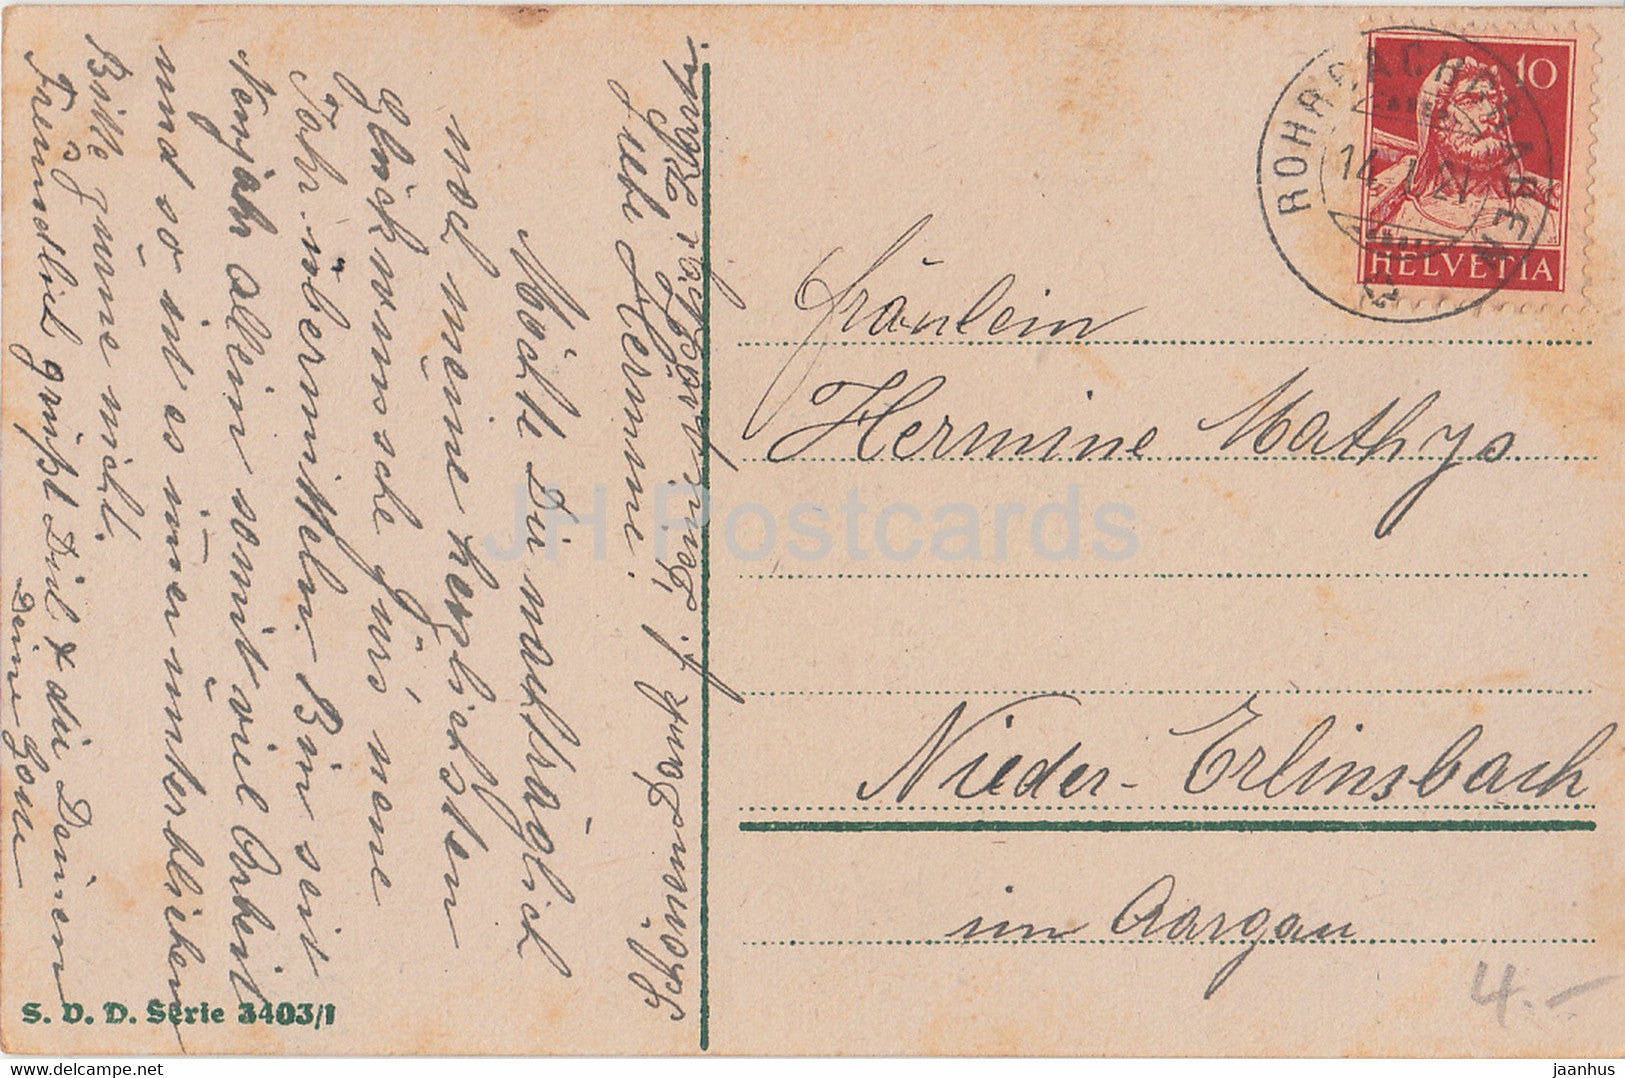 Liebe Hermine.
Möchte Dir nachträglich
noch meine herzlichsten
Glückwünsche zürs neue
Jahr übermitteln. Bin seit
Neujahr allein somit viel Arbeit
und so ist es im̅er unterblieben
Bitte zürne nicht.
Freundlich grüßt Dich & die Deinen
Deine
Schönen Dank f. Deine
Karte
Fräulein
Hermine Mathys
Nieder-Erlinsbach
im Aargau
4.-
S. V. D. Serie 3403/1
ROHR
14. I. 21
10
HELVETIA
JH Postcards
www.delcampe.net
jaanhus